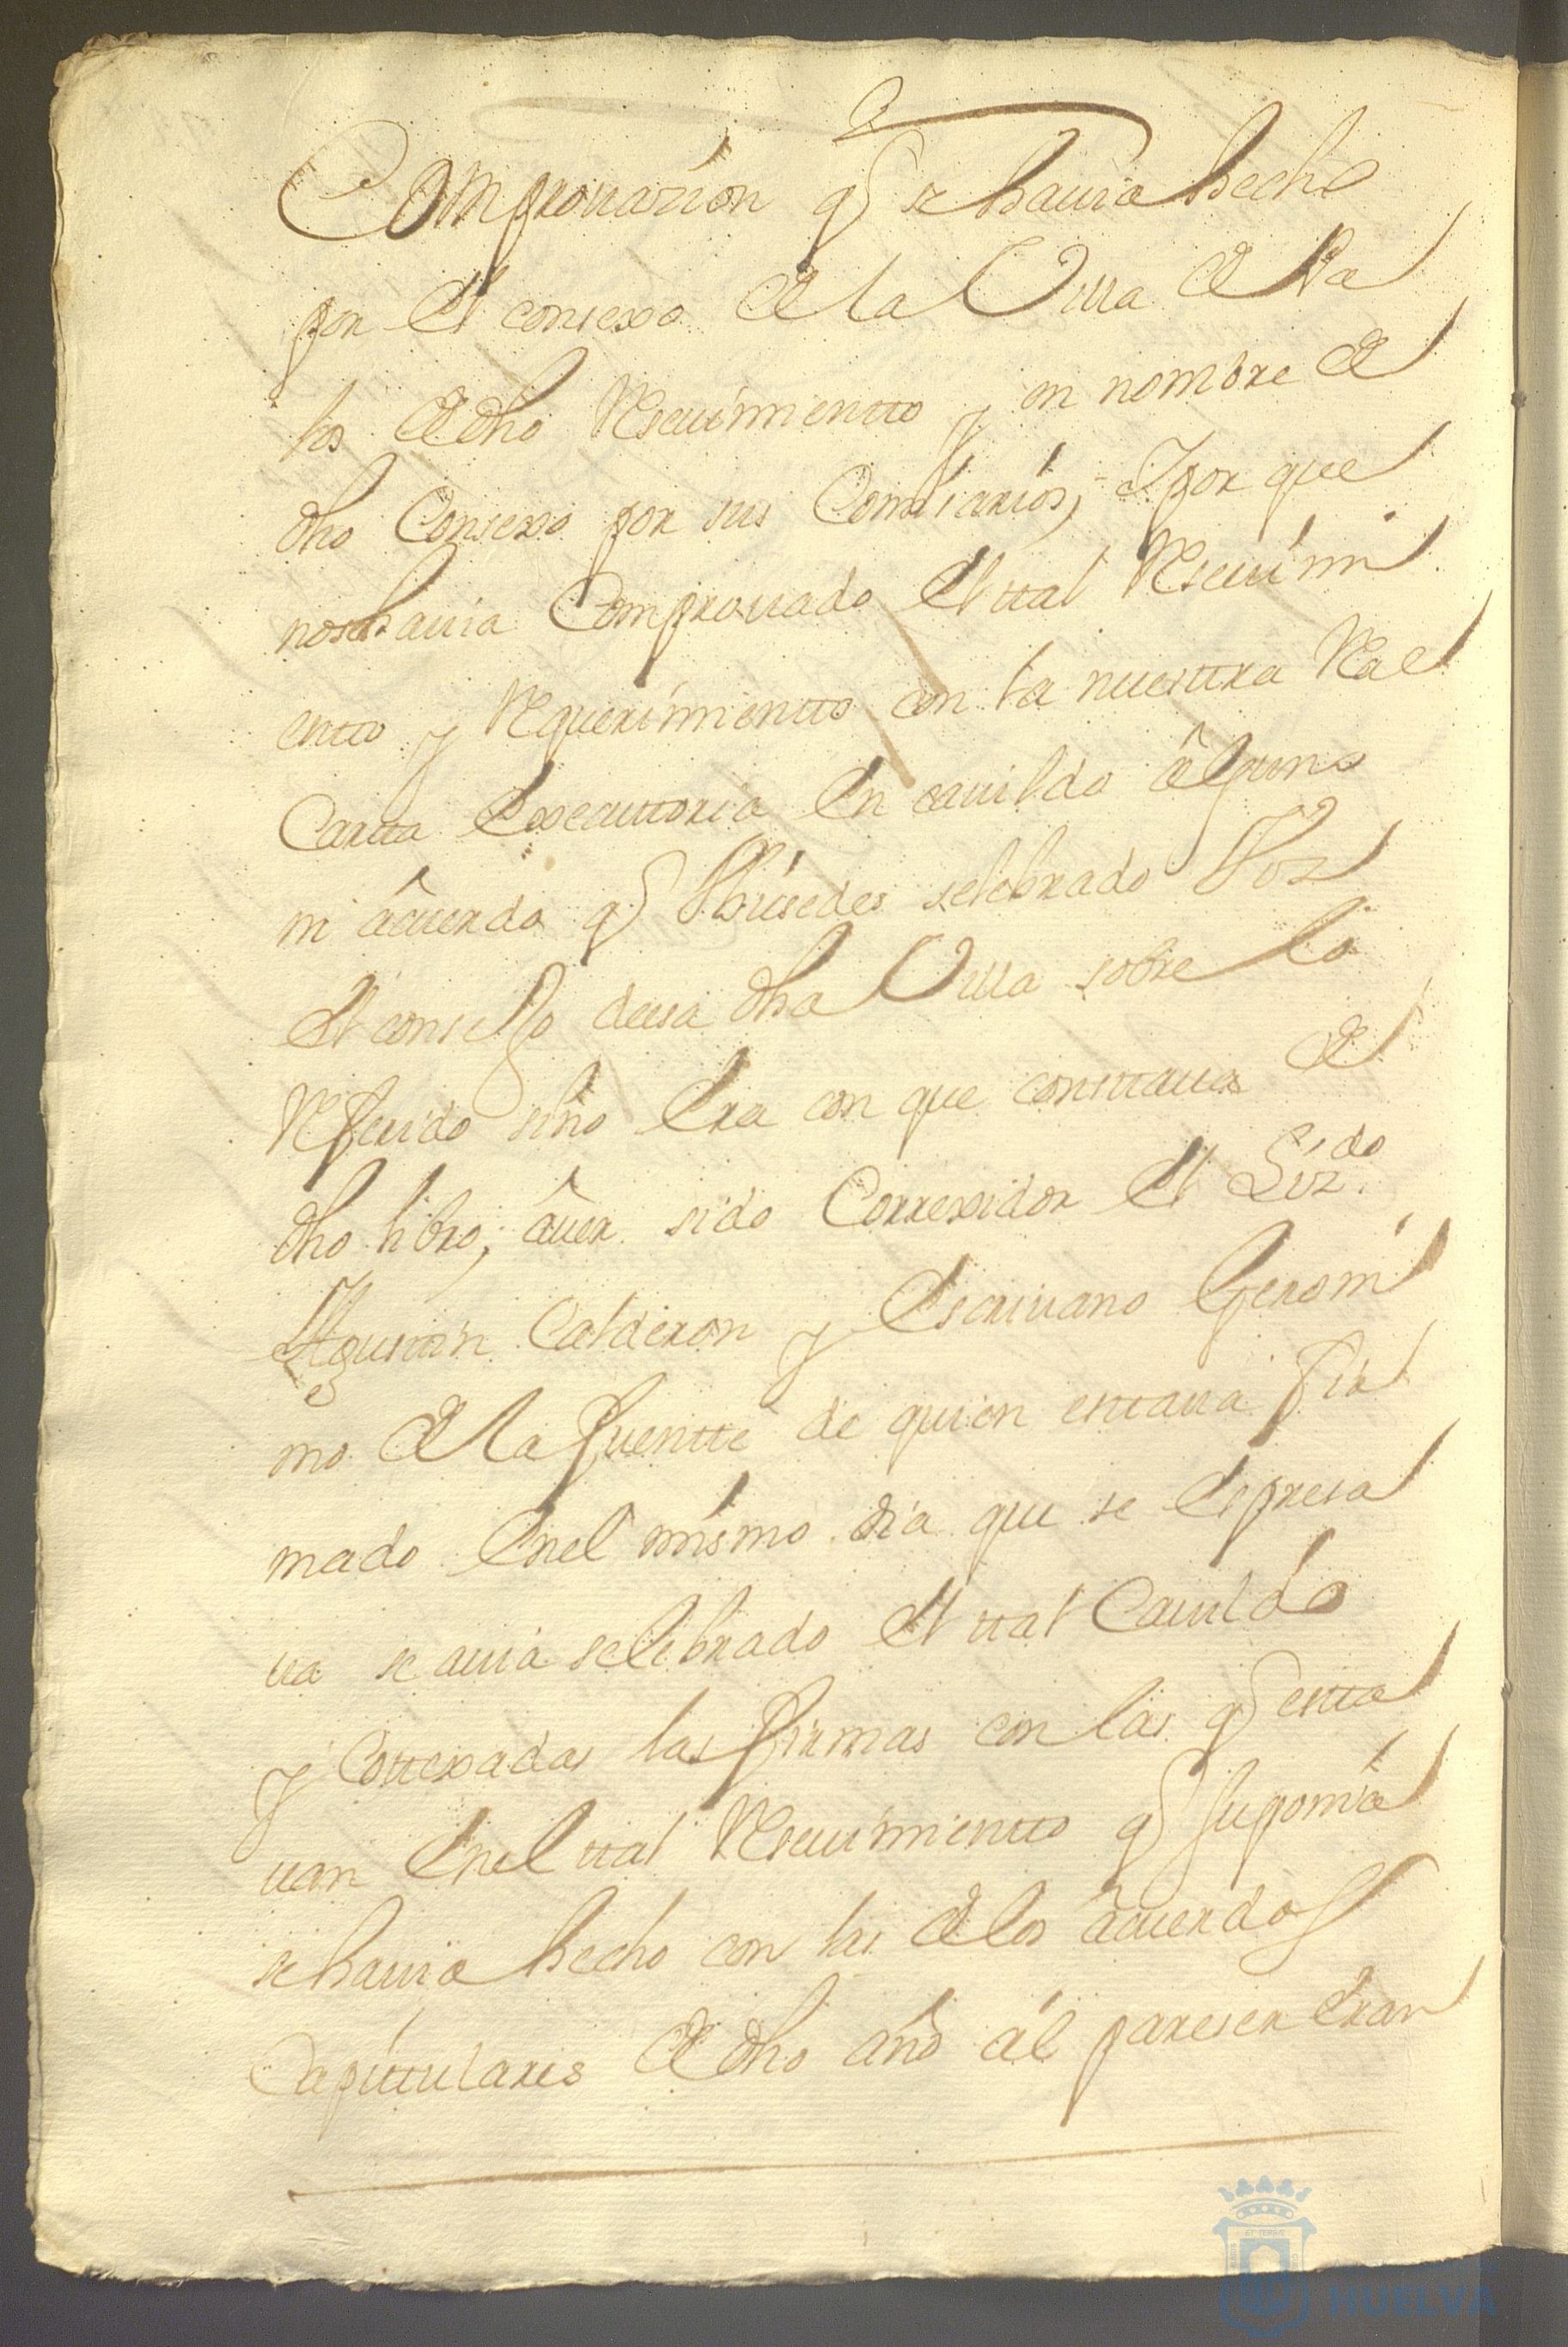 Comprouazion q se hauia hecho
por el consexo de la Villa de Pa
los de dho Reseuimientto y en nombre de
dho Consexo por sus Comisarios, y por que
nose hauia Comprouado el ttal Reseuimi
entto y Requerimientto con la nuesttra Rae
Cartta Executtoria En cauildo âlguno
ni âcuerdo q Vbiesedes selebrado Por
el consejo desa dha Villa sobre lo
Referido sino Era con que consttaua de
dho libro, âuer sido Correxidor el Liz.do
Agustin Calderon y Escriuano Geroni
mo de la fuentte de quien esttaua fir
mado Enel mismo dia que se Espresa
ua se auia selebrado el ttal Cauildo
y Cottexadas las firmas con las q estta
uan Enel ttal Reseuimientto q suponia
se hauia hecho con las de los âcuerdos
Capittulares de dho año al pareser Eran
HUELVA